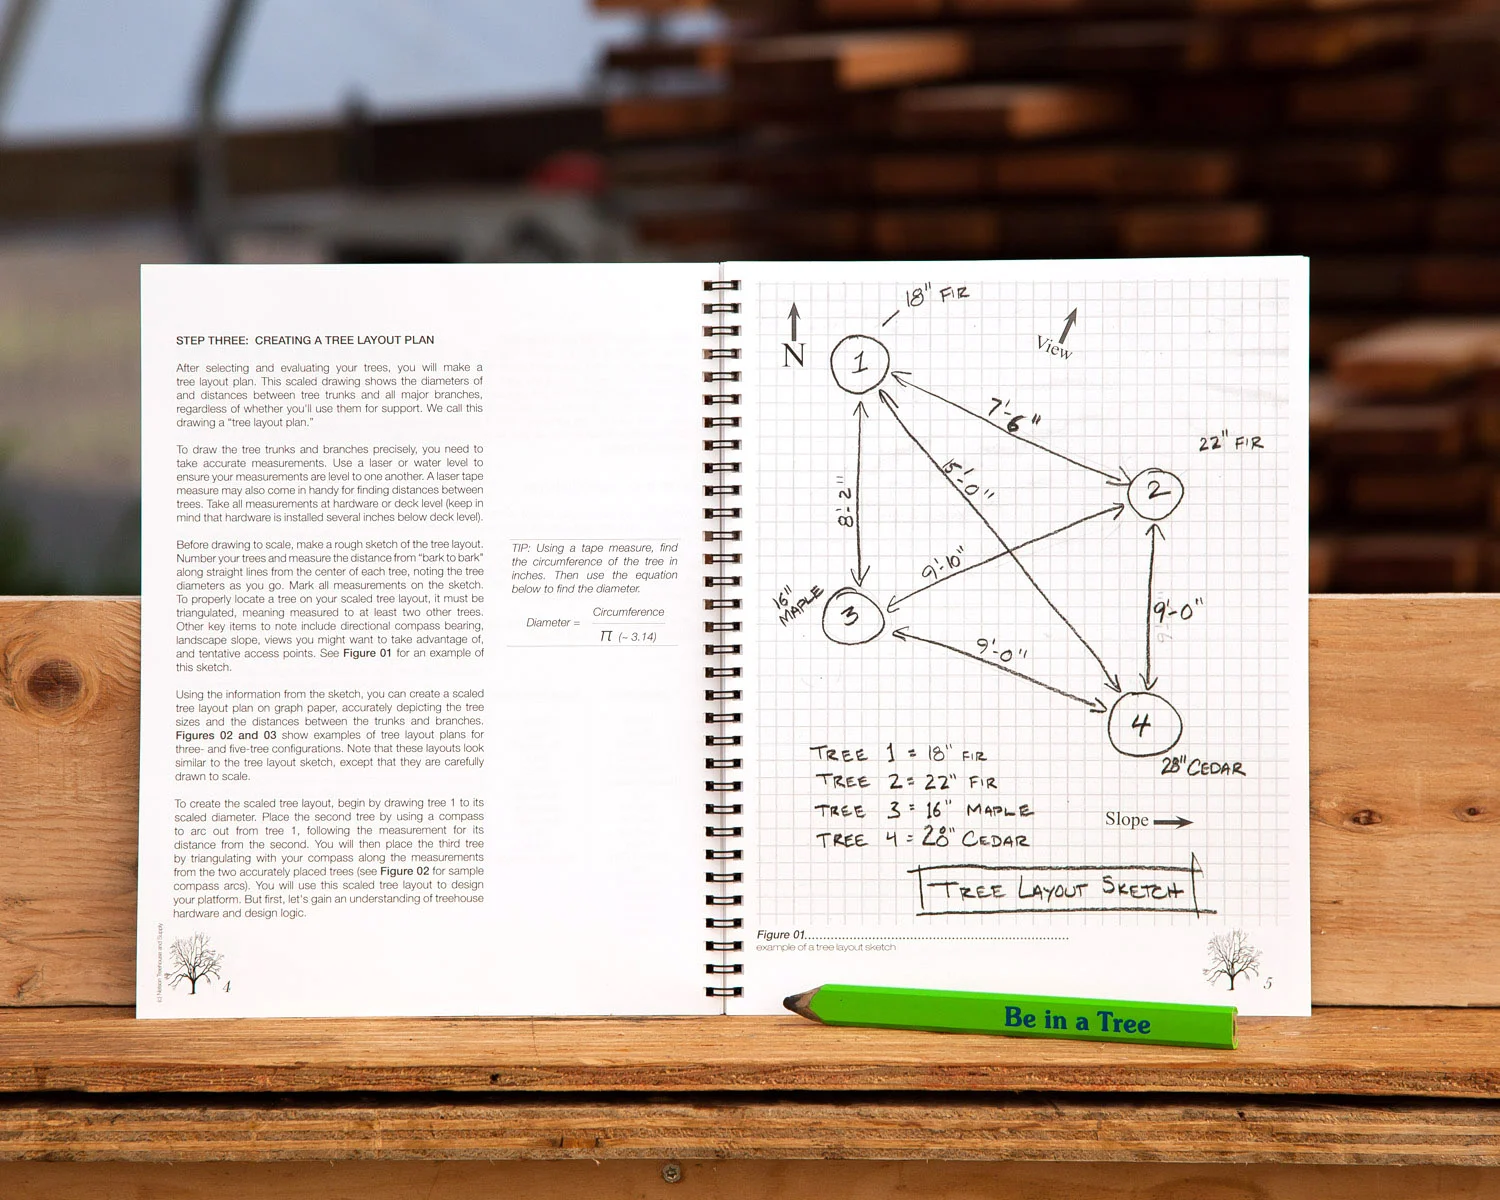 STEP THREE: CREATING A TREE LAYOUT PLAN
After selecting and evaluating your trees, you will make a
tree layout plan. This scaled drawing shows the diameters of
and distances between tree trunks and all major branches,
regardless of whether you'll use them for support. We call this
drawing a "tree layout plan."
To draw the tree trunks and branches precisely, you need to
take accurate measurements. Use a laser or water level to
ensure your measurements are level to one another. A laser tape
measure may also come in handy for finding distances between
trees. Take all measurements at hardware or deck level (keep in
mind that hardware is installed several inches below deck level).
Before drawing to scale, make a rough sketch of the tree layout.
Number your trees and measure the distance from "bark to bark"
along straight lines from the center of each tree, noting the tree
diameters as you go. Mark all measurements on the sketch.
To properly locate a tree on your scaled tree layout, it must be
triangulated, meaning measured to at least two other trees.
Other key items to note include directional compass bearing,
landscape slope, views you might want to take advantage of,
and tentative access points. See Figure 01 for an example of
this sketch.
Using the information from the sketch, you can create a scaled
tree layout plan on graph paper, accurately depicting the tree
sizes and the distances between the trunks and branches.
Figures 02 and 03 show examples of tree layout plans for
three- and five-tree configurations. Note that these layouts look
similar to the tree layout sketch, except that they are carefully
drawn to scale.
To create the scaled tree layout, begin by drawing tree 1 to its
scaled diameter. Place the second tree by using a compass
to arc out from tree 1, following the measurement for its
distance from the second. You will then place the third tree
by triangulating with your compass along the measurements
from the two accurately placed trees (see Figure 02 for sample
compass arcs). You will use this scaled tree layout to design
your platform. But first, let's gain an understanding of treehouse
hardware and design logic.
(c) Nelson Treehouse and Supply
4
TIP: Using a tape measure, find
the circumference of the tree in
inches. Then use the equation
below to find the diameter.
Diameter =
Circumference
π (~ 3.14)
18" FIR
N
View
1
7'-6"
22" FIR
2
15'-0"
8'-2"
9'-10"
16"
MAPLE
3
9'-0"
9'-0"
4
28" CEDAR
TREE 1 = 18" FIR
TREE 2 = 22" FIR
TREE 3 = 16" MAPLE
TREE 4 = 28" CEDAR
Slope
TREE LAYOUT SKETCH
Figure 01
example of a tree layout sketch
5
Be in a Tree